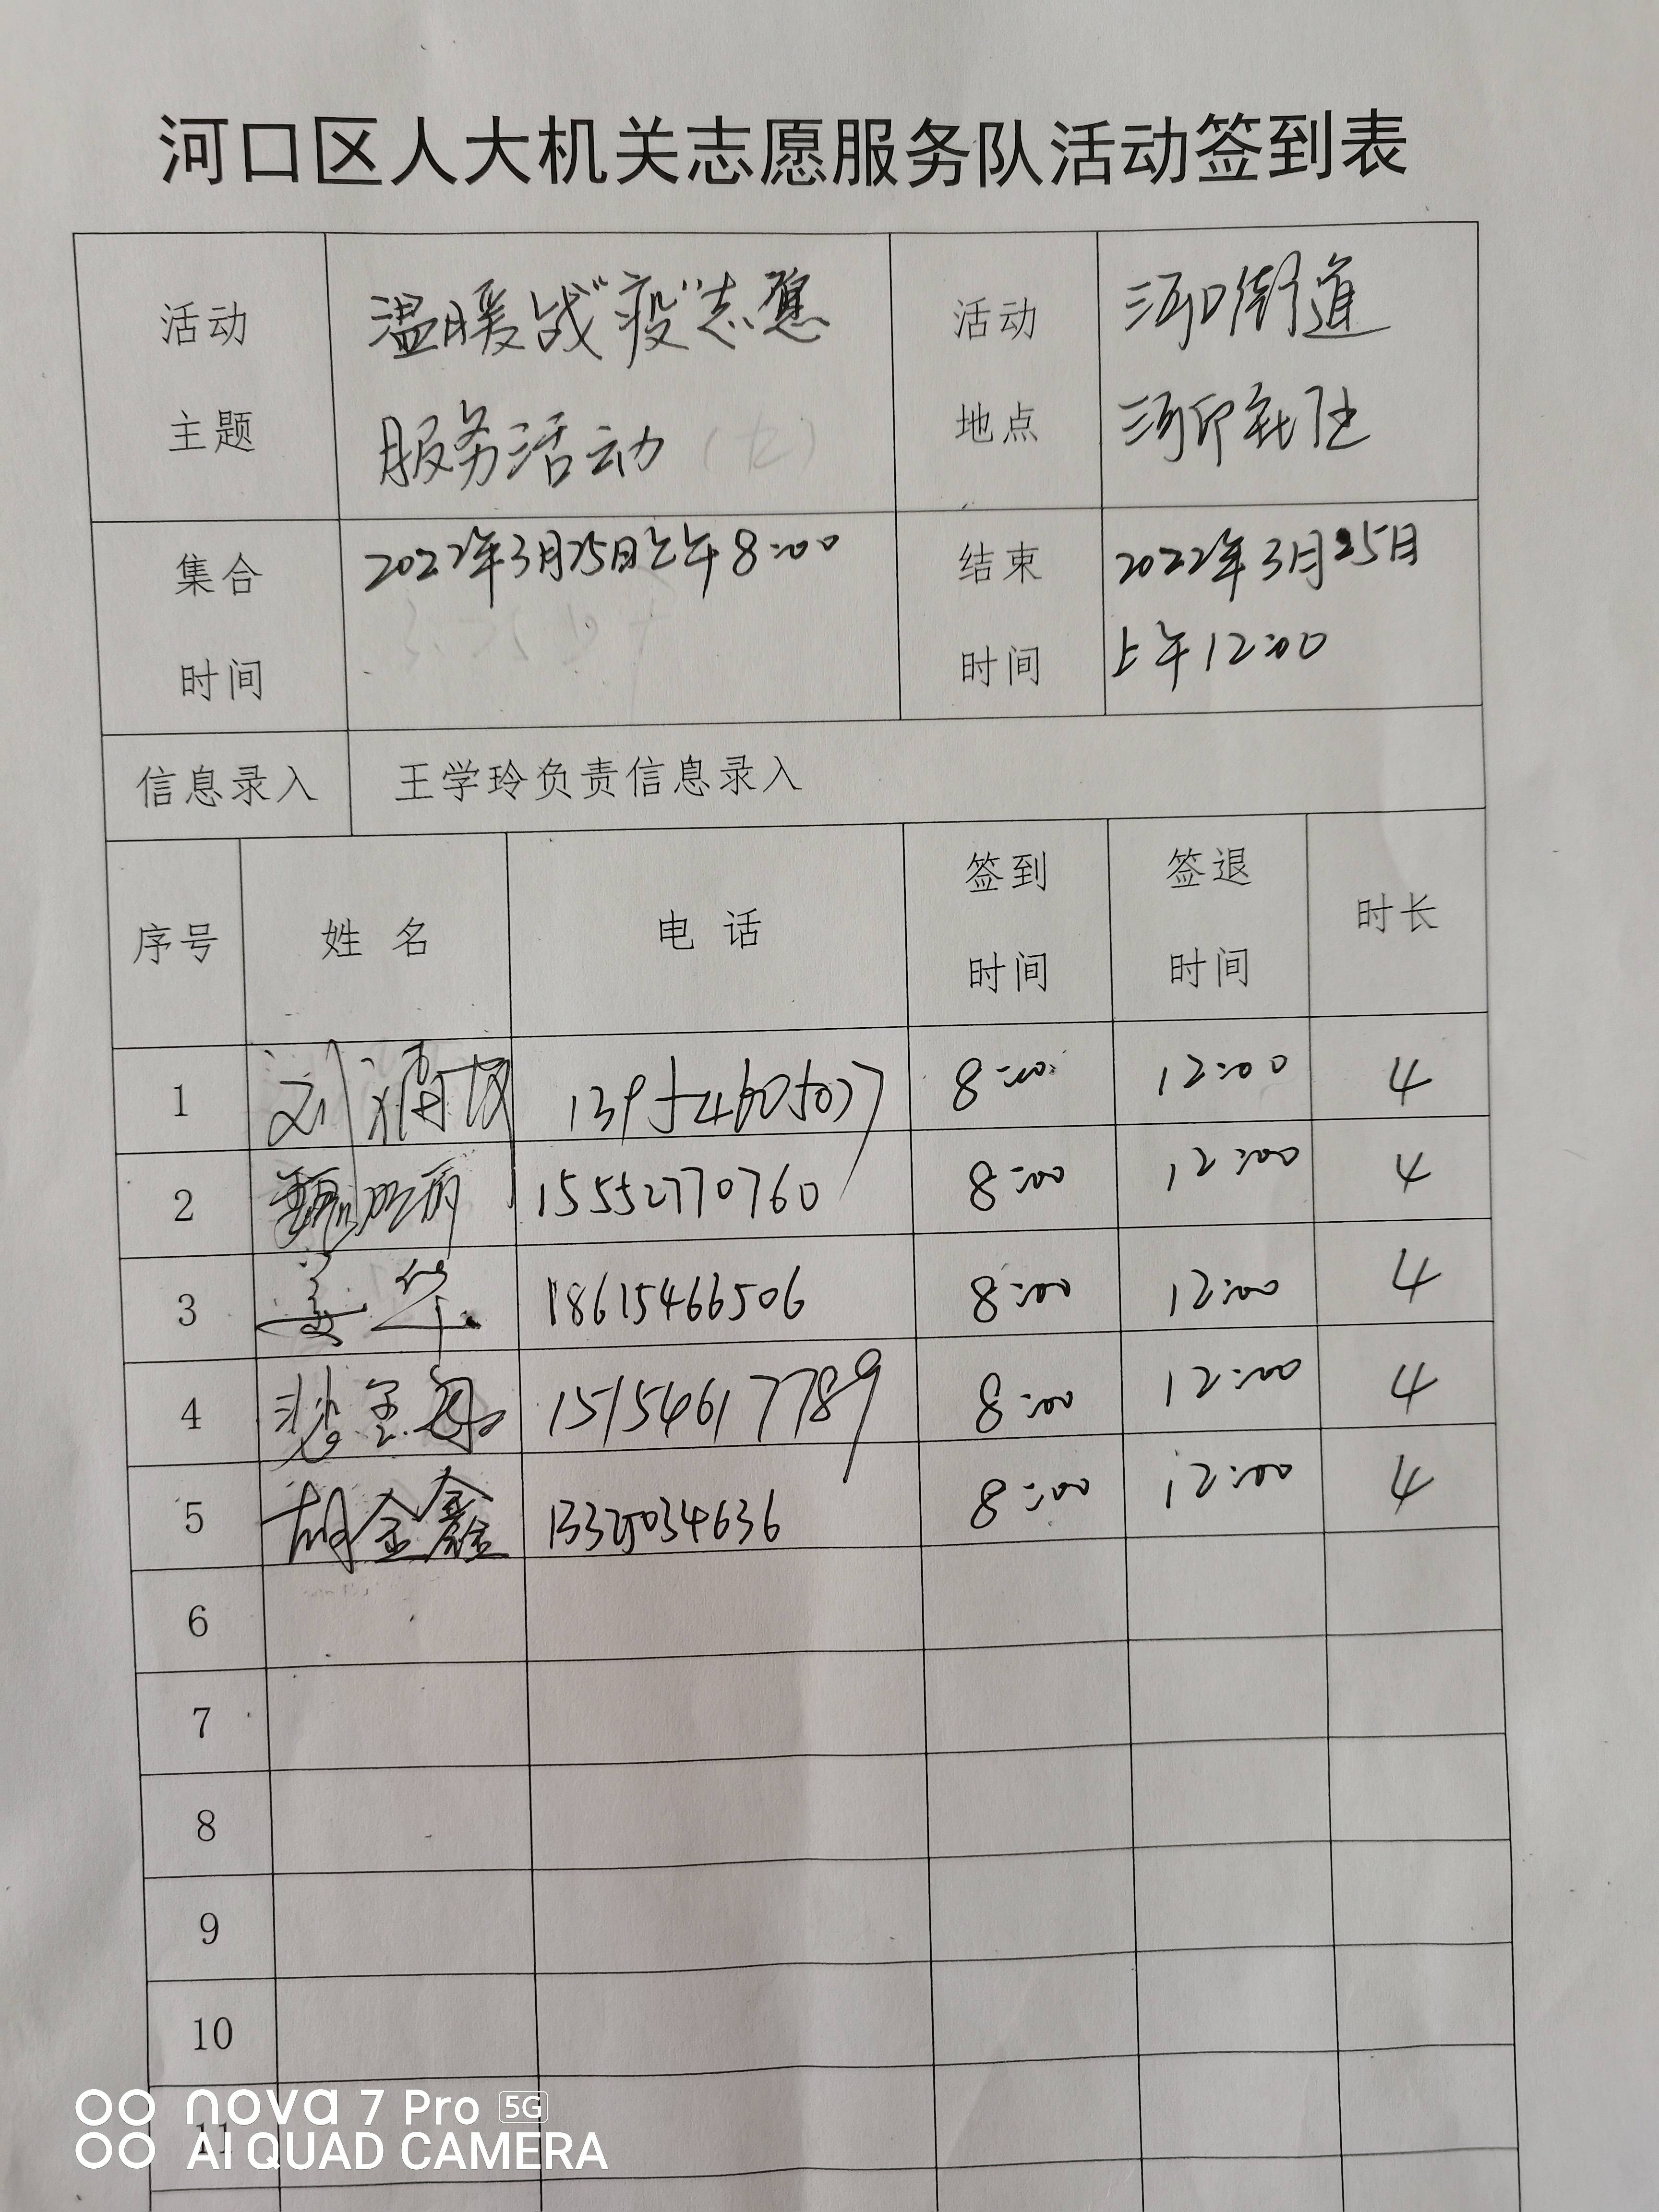 河口区人大机关志愿服务队活动签到表
活动
主题
温暖战“疫”志愿
服务活动
活动
地点
河口街道
社区
集合
时间
2022年3月25日上午8:00
结束
时间
2022年3月25日
上午12:00
信息录入 王学玲负责信息录入
序号 姓名 电话 签到时间 签退时间 时长
1 刘 8:00 12:00 4
2 15552770760 8:00 12:00 4
3 姜华 18615466506 8:00 12:00 4
4 15154617789 8:00 12:00 4
5 胡金鑫 8:00 12:00 4
6
7
8
9
10
11
nova 7 Pro 5G
AI QUAD CAMERA